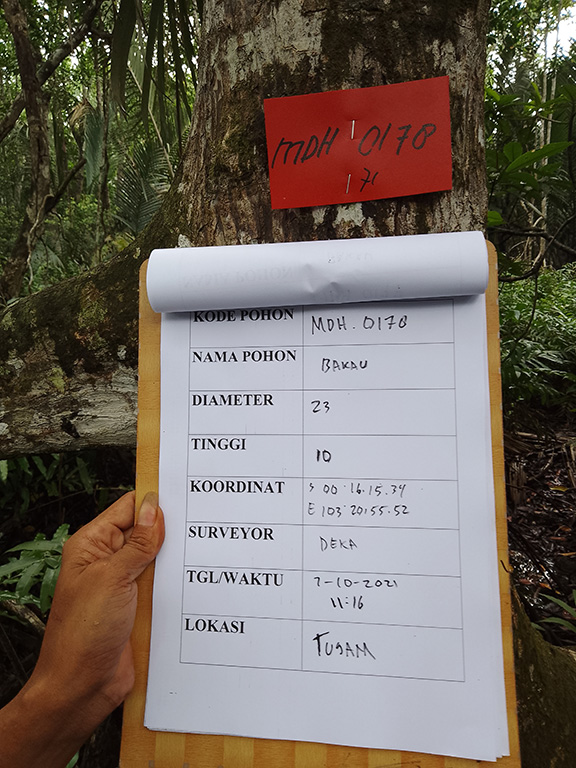 MDH 0178
71
KODE POHON MDH. 0178
NAMA POHON BAKAU
DIAMETER 23
TINGGI 10
KOORDINAT S 00.16.15.34
E 103.20.55.52
SURVEYOR DEKA
TGL/WAKTU 7-10-2021
11:16
LOKASI